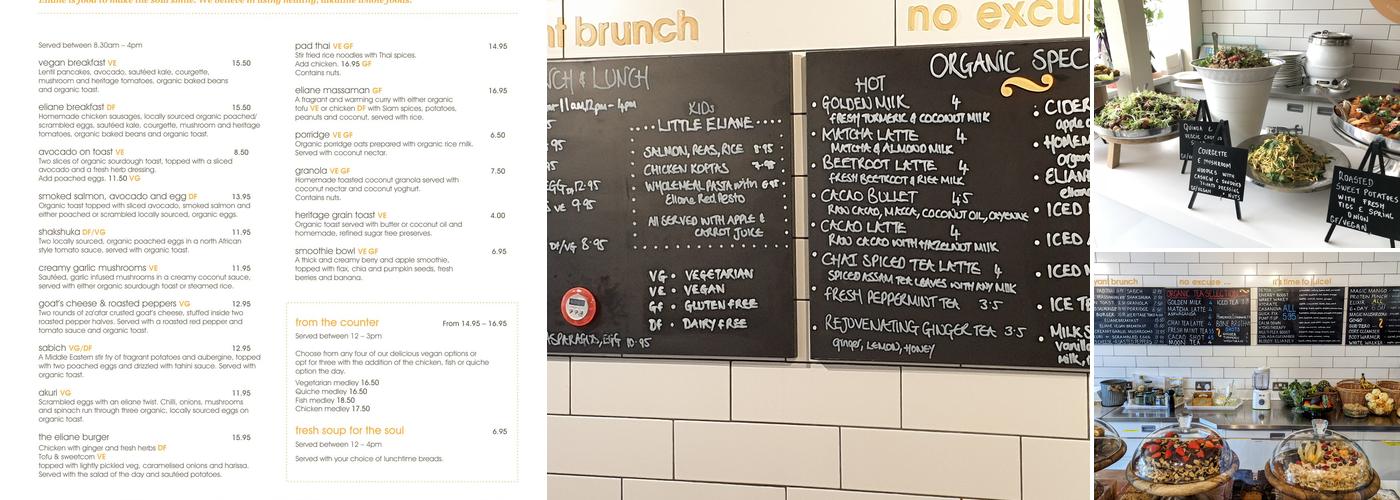 Eliane is food to make the soul smile. We believe in using healthy, alkaline whole foods.
Served between 8.30am – 4pm
vegan breakfast VE 15.50
Lentil pancakes, avocado, sautéed kale, courgette,
mushroom and heritage tomatoes, organic baked beans
and organic toast.
eliane breakfast DF 15.50
Homemade chicken sausages, locally sourced organic poached/
scrambled eggs, sautéed kale, courgette, mushroom and heritage
tomatoes, organic baked beans and organic toast.
avocado on toast VE 8.50
Two slices of organic sourdough toast, topped with a sliced
avocado and a fresh herb dressing.
Add poached eggs. 11.50 VG
smoked salmon, avocado and egg DF 13.95
Organic toast topped with sliced avocado, smoked salmon and
either poached or scrambled locally sourced, organic eggs.
shakshuka DF/VG 11.95
Two locally sourced, organic poached eggs in a north African
style tomato sauce, served with organic toast.
creamy garlic mushrooms VE 11.95
Sautéed, garlic infused mushrooms in a creamy coconut sauce,
served with either organic sourdough toast or steamed rice.
goat's cheese & roasted peppers VG 12.95
Two rounds of za'atar crusted goat's cheese, stuffed inside two
roasted pepper halves. Served with a roasted red pepper and
tomato sauce and organic toast.
sabich VG/DF 12.95
A Middle Eastern stir fry of fragrant potatoes and aubergine, topped
with two poached eggs and drizzled with tahini sauce. Served with
organic toast.
akuri VG 11.95
Scrambled eggs with an eliane twist. Chilli, onions, mushrooms
and spinach run through three organic, locally sourced eggs on
organic toast.
the eliane burger 15.95
Chicken with ginger and fresh herbs DF
Tofu & sweetcorn VE
topped with lightly pickled veg, caramelised onions and harissa.
Served with the salad of the day and sautéed potatoes.
pad thai VE GF 14.95
Stir fried rice noodles with Thai spices.
Add chicken. 16.95 GF
Contains nuts.
eliane massaman GF 16.95
A fragrant and warming curry with either organic
tofu VE or chicken DF with Siam spices, potatoes,
peanuts and coconut, served with rice.
porridge VE GF 6.50
Organic porridge oats prepared with organic rice milk.
Served with coconut nectar.
granola VE GF 7.50
Homemade toasted coconut granola served with
coconut nectar and coconut yoghurt.
Contains nuts.
heritage grain toast VE 4.00
Organic toast served with butter or coconut oil and
homemade, refined sugar free preserves.
smoothie bowl VE GF 6.95
A thick and creamy berry and apple smoothie,
topped with flax, chia and pumpkin seeds, fresh
berries and banana.
from the counter From 14.95 – 16.95
Served between 12 – 3pm
Choose from any four of our delicious vegan options or
opt for three with the addition of the chicken, fish or quiche
option the day.
Vegetarian medley 16.50
Quiche medley 16.50
Fish medley 18.50
Chicken medley 17.50
fresh soup for the soul 6.95
Served between 12 – 4pm
Served with your choice of lunchtime breads.
nt brunch
CH & LUNCH
12pm – 4pm
12.95
9.95
DF/VG 8.95
ASPARAGUS, EGG 10.95
KIDS
LITTLE ELIANE
SALMON, PEAS, RICE 8.95
CHICKEN KOFTAS
WHOLEMEAL PASTA with
Eliane Red Pesto
All SERVED WITH APPLE &
CARROT JUICE
VG • VEGETARIAN
VE • VEGAN
GF • GLUTEN FREE
DF • DAIRY FREE
no excu
ORGANIC SPEC
HOT
• GOLDEN MILK 4
FRESH TURMERIC & COCONUT MILK
• MATCHA LATTE 4
MATCHA & ALMOND MILK
• BEETROOT LATTE 4
FRESH BEETROOT & RICE MILK
• CACAO BULLET 4.5
RAW CACAO, MACCA, COCONUT OIL, CAYENNE
• CACAO LATTE 4
RAW CACAO WITH HAZELNUT MILK
• CHAI SPICED TEA LATTE 4
SPICED ASSAM TEA LEAVES WITH ANY MILK
• FRESH PEPPERMINT TEA 3.5
• REJUVENATING GINGER TEA 3.5
ginger, LEMON, HONEY
• CIDER
apple
• HOMEM
Organ
• ELIAN
eliane
• ICED
• ICED
• ICED M
• ICE TE
• MILKS
Vanilla
Milk,
QUINOA &
COURGETTE
& MUSHROOM
NOODLES WITH
CASHEW &
TOMATO DRESSING
GF/VEGAN NUTS
ROASTED
SWEET POTATOES
WITH FRESH
HERBS & SPRING
ONION
GF/VEGAN
yant brunch
no excuse ...
time to juice!
ORGANIC TEA SELECTION
GOLDEN MILK
MATCHA LATTE
CHAI TEA LATTE
MOON TEA
BONE BROTH